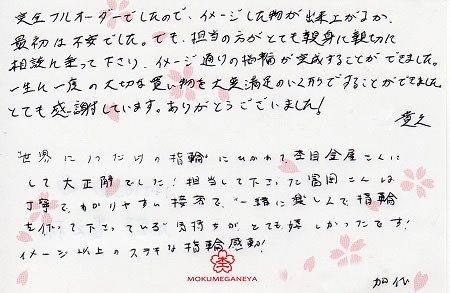 完全フルオーダーでしたので、イメージした物が出来上がるか、
最初は不安でした。でも、担当の方がとても親身に親切に
相談に乗って下さり、イメージ通りの指輪が完成することができました。
一生に一度の大切な買い物を大満足のいく形ですることができました。
とても感謝しています。ありがとうございました!
"世界に1つだけの指輪"にひかれて、杢目金屋さんに
して大正解でした!担当して下さった冨岡さんは
丁寧で、わかりやすい接客で、"一緒に楽しんで指輪
を作って下さっている"気持ちが、とても嬉しかったです!
イメージ以上のステキな指輪感動!
MOKUMEGANEYA